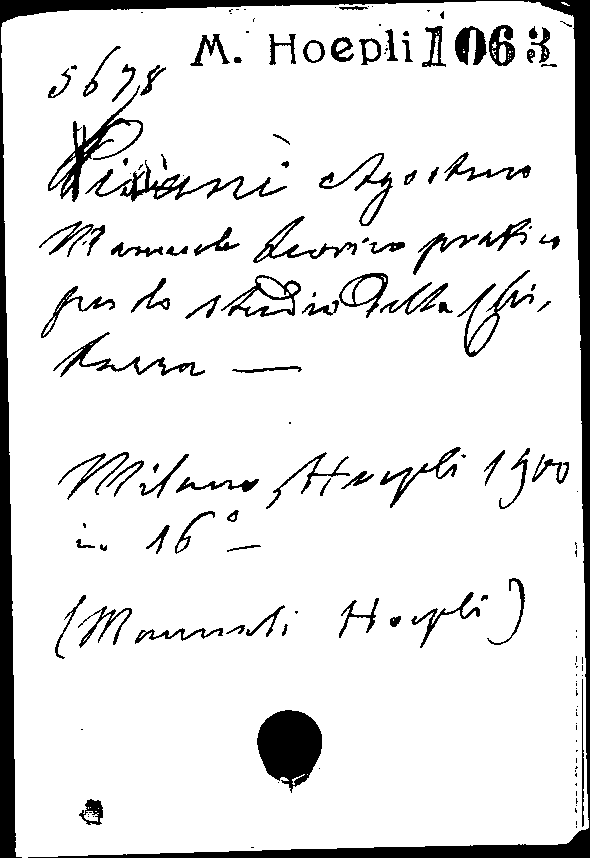 M. Hoepli 1063
5678
Pisani Agostino
Manuale teorico pratico
per lo studio della Chi,
tarra —
Milano, Hoepli 1900
in 16° —
(Manuali Hoepli)